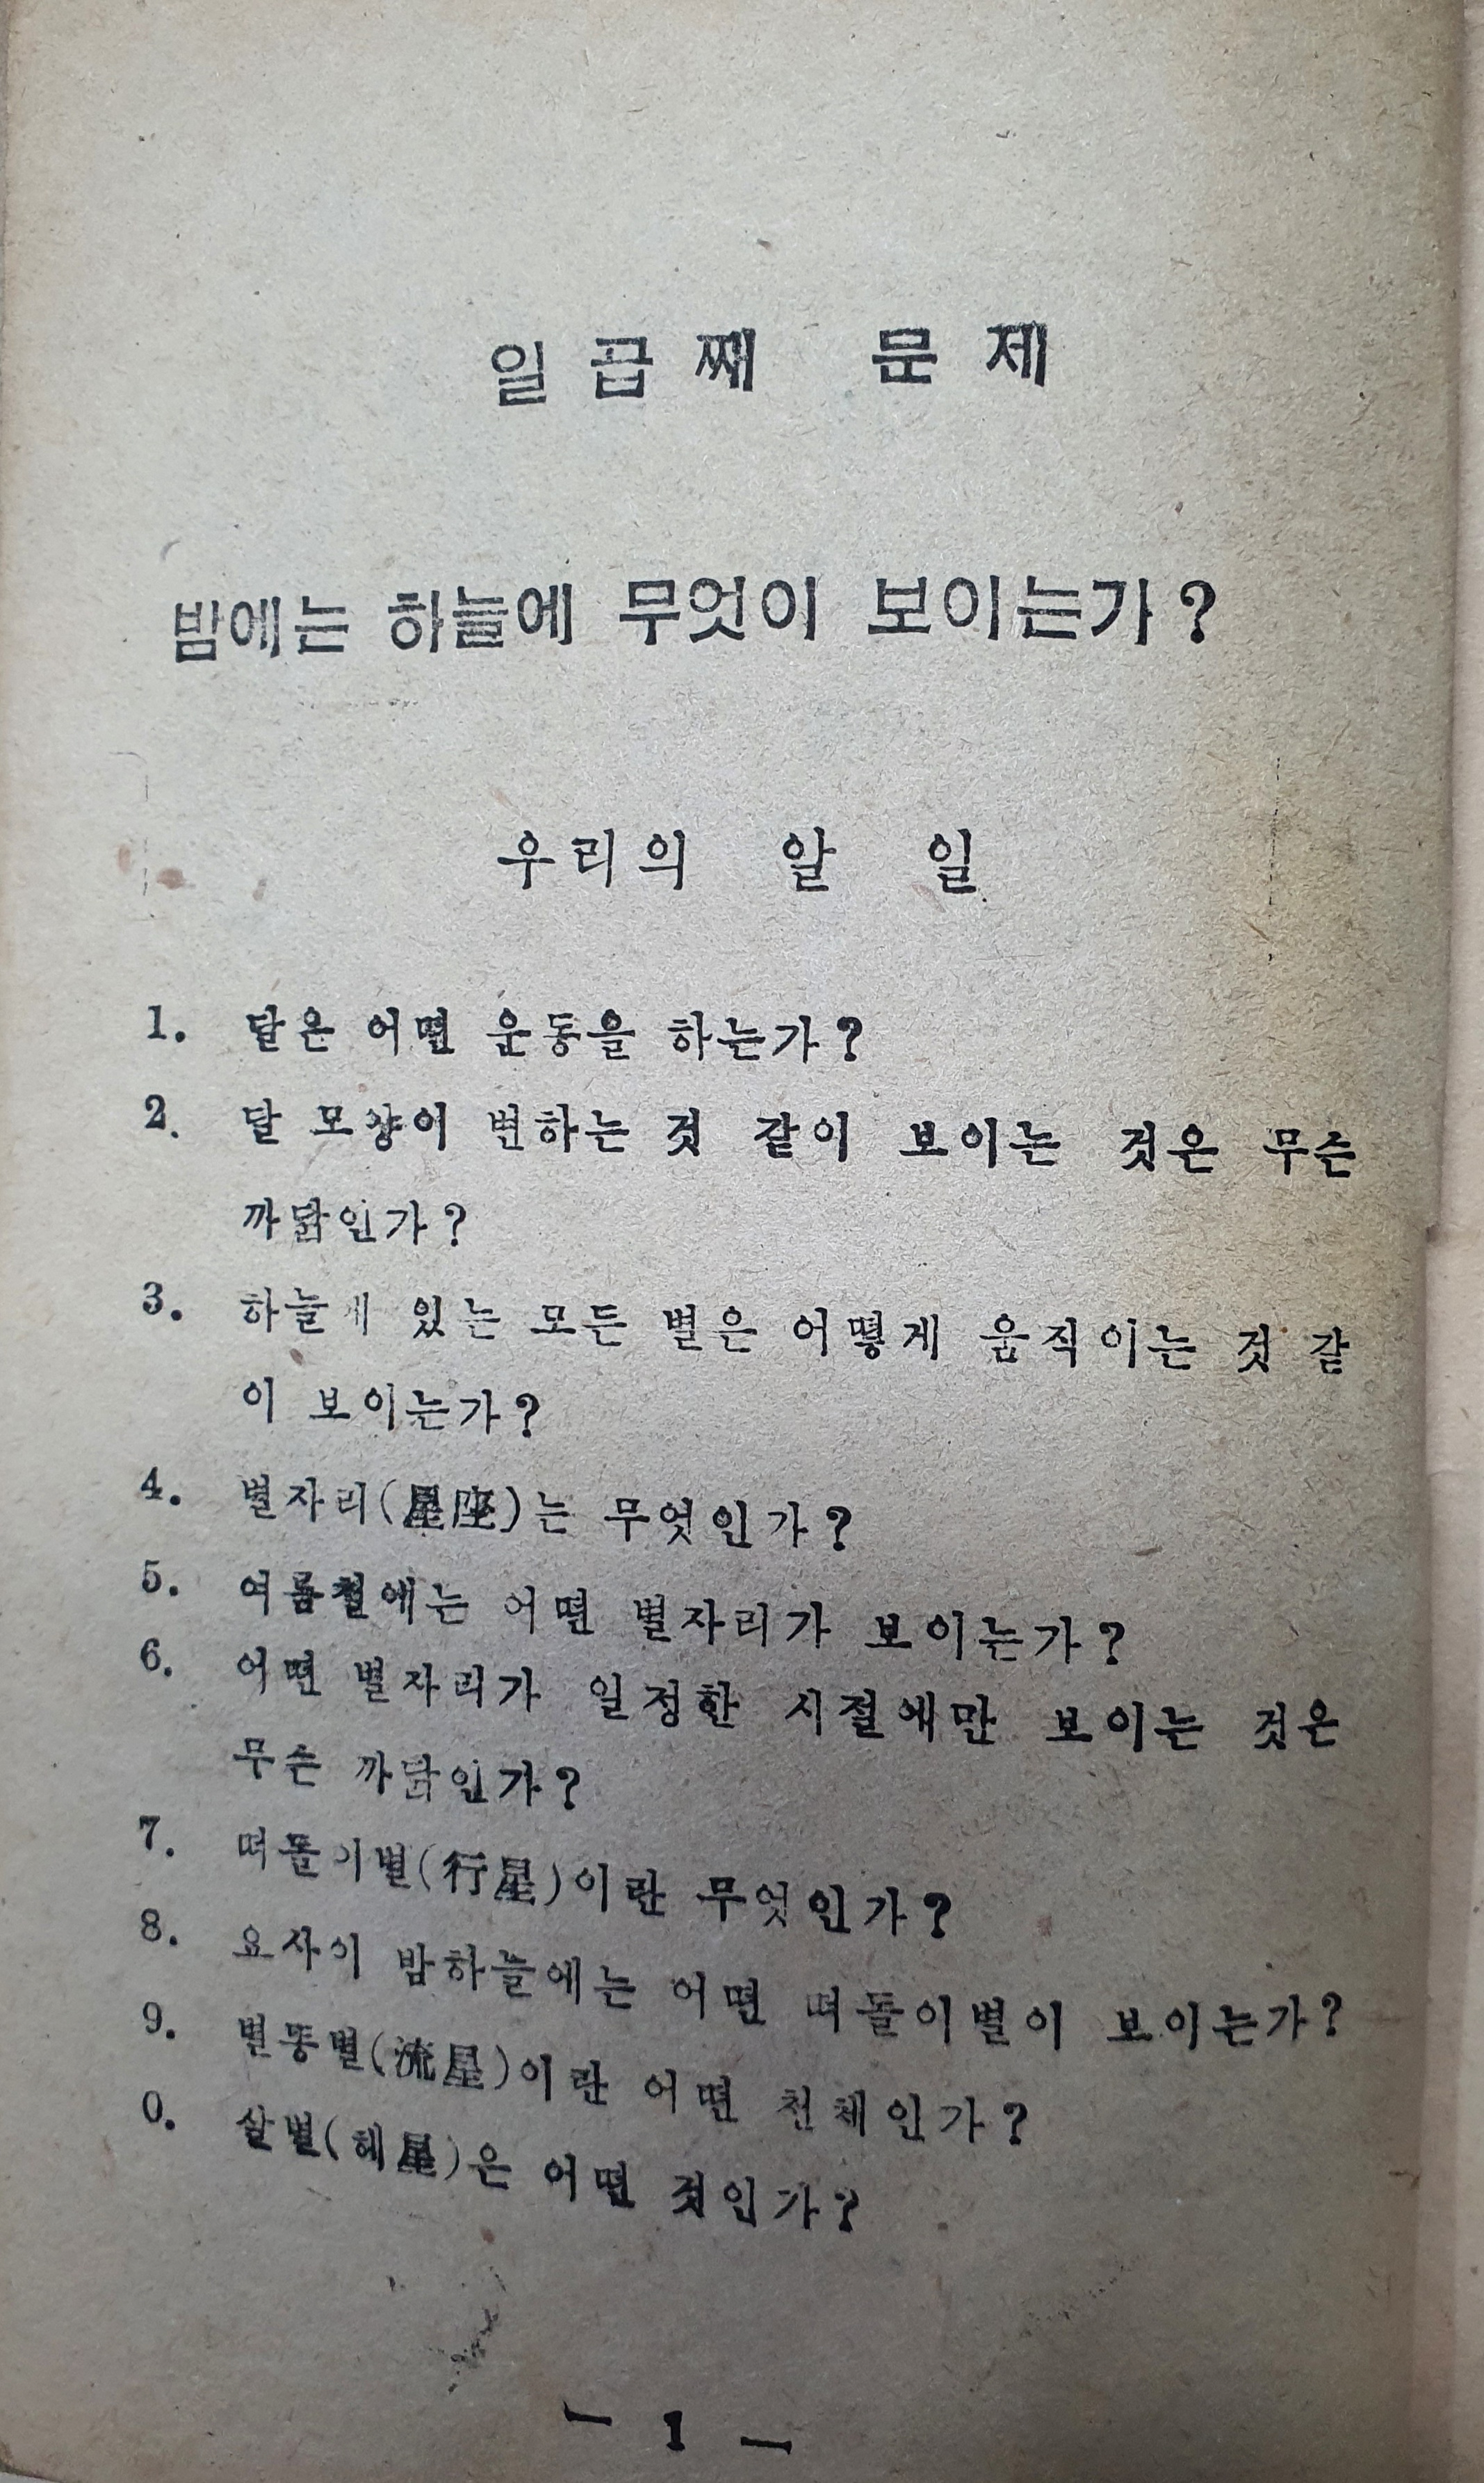 일곱째 문제
밤에는 하늘에 무엇이 보이는가?
우리의 알 일
1. 달은 어떤 운동을 하는가?
2. 달 모양이 변하는 것 같이 보이는 것은 무슨
까닭인가?
3. 하늘에 있는 모든 별은 어떻게 움직이는 것 같
이 보이는가?
4. 별자리(星座)는 무엇인가?
5. 여름철에는 어떤 별자리가 보이는가?
6. 어떤 별자리가 일정한 시절에만 보이는 것은
무슨 까닭인가?
7. 떠돌이별(行星)이란 무엇인가?
8. 요사이 밤하늘에는 어떤 떠돌이별이 보이는가?
9. 별똥별(流星)이란 어떤 천체인가?
0. 살별(혜星)은 어떤 것인가?
— 1 —